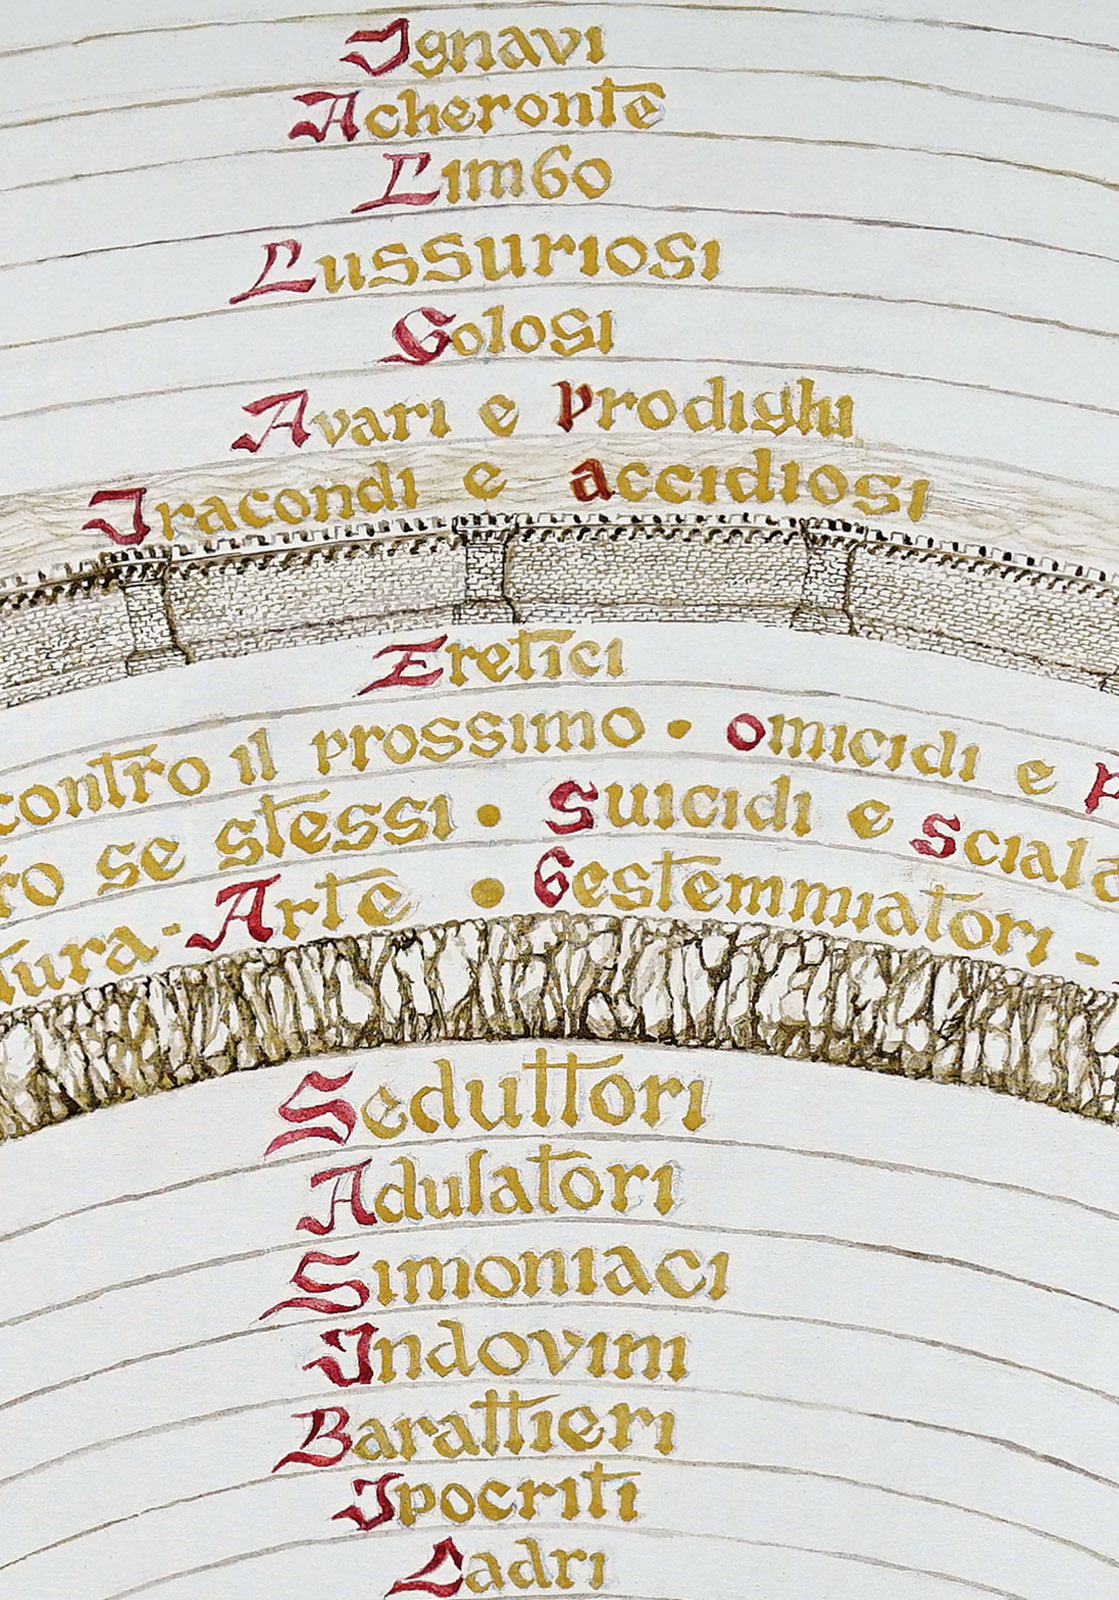 Ignavi
Acheronte
Limbo
Lussuriosi
Golosi
Avari e prodighi
Iracondi e accidiosi
Eretici
contro il prossimo • omicidi e p
ro se stessi • Suicidi e Sciala
tura - Arte • bestemmiatori -
Seduttori
Adulatori
Simoniaci
Indovini
Barattieri
Ipocriti
Ladri